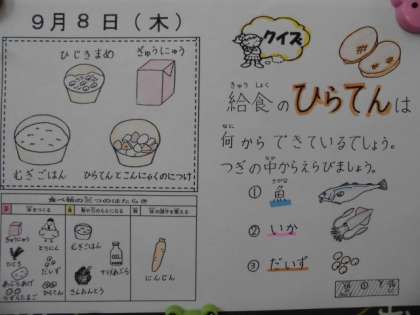 9月8日(木)
ひじきまめ
ぎゅうにゅう
むぎごはん
ひらてんとこんにゃくのにつけ
ぎゅうにゅう
とりにく
ひじき
だいず
あぶらあげ
ひらてん
むぎごはん
さんおんとう
にんじん
クイズ
きゅうしょく
給食のひらてんは
なに
何からできているでしょう。
つぎの中からえらびましょう。
さかな
① 魚
② いか
③ だいず